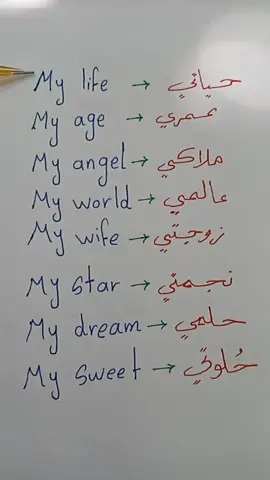 My life → حياتي
My age → عمري
My angel → ملاكي
My world → عالمي
My wife → زوجتي
My star → نجمتي
My dream → حلمي
My sweet → حُلوتي